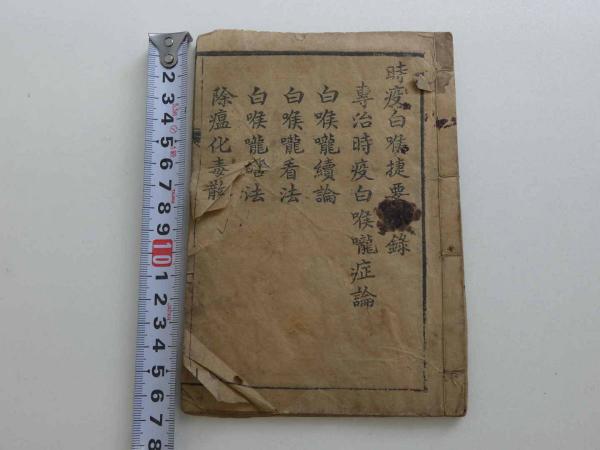 時疫白喉捷要 錄
專治時疫白喉嚨症論
白喉嚨續論
白喉嚨看法
白喉嚨 法
除瘟化毒散
2
3
4
5
6
7
8
9
10
1
2
3
4
5
6
7
8